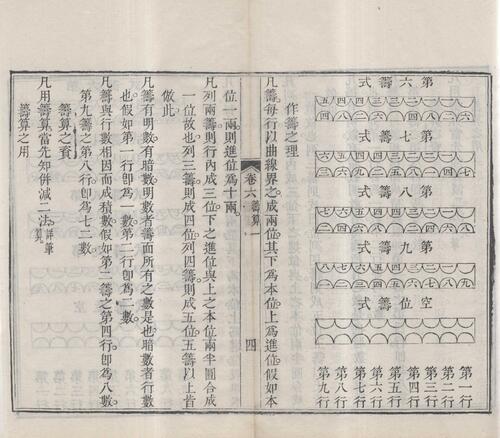 第六籌式
第七籌式
第八籌式
第九籌式
空位籌式
第一行
第二行
第三行
第四行
第五行
第六行
第七行
第八行
第九行
作籌之理
凡籌每行以曲線界之成兩位其下為本位上為進位假如本
卷六 籌算一 四
位一兩則進位為十兩
凡列兩籌則行內成三位下之進位與上之本位兩半圓合成
一位故也列三籌則成四位列四籌則成五位五籌以上皆
倣此
凡籌有明數有暗數明數者籌面所有之數是也暗數者行數
也假如第一行卽為一數第二行卽為二數
凡籌與行數相因而成積數假如第二籌之第四行卽為八數
第九籌之第八行卽為七二數
籌算之資
凡用籌算當先知併減二法詳筆算
籌算之用